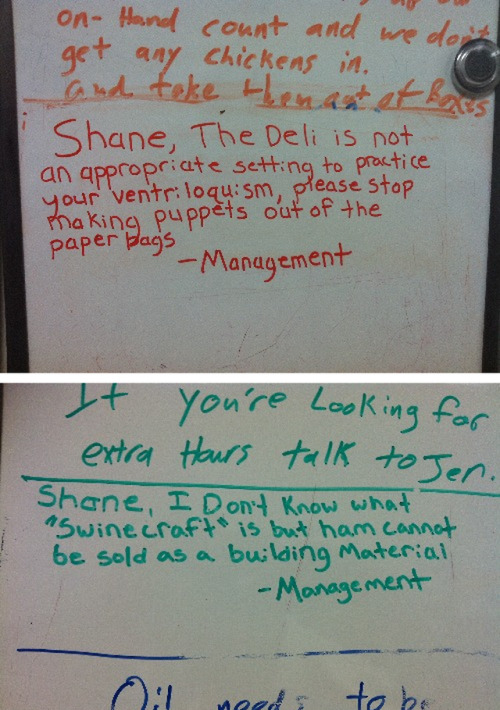 on-Hand count and we don't
get any chickens in.
and take them out of Boxes
Shane, The Deli is not
an appropriate setting to practice
your ventriloquism, please stop
making puppets out of the
paper bags
-Management
If you're Looking for
extra Hours talk to Jen.
Shane, I Don't Know what
"Swinecraft" is but ham cannot
be sold as a building Material
-Management
Oil needs to be